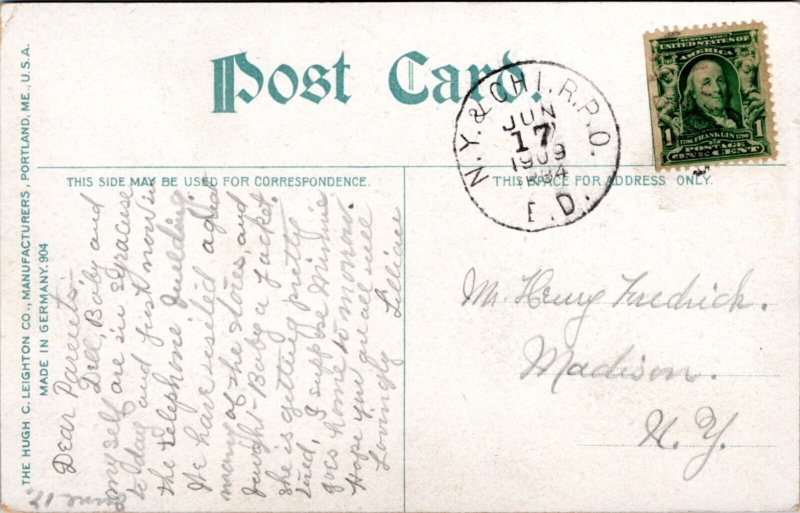 Post Card.
THIS SIDE MAY BE USED FOR CORRESPONDENCE.
THIS SPACE FOR ADDRESS ONLY.
THE HUGH C. LEIGHTON CO., MANUFACTURERS, PORTLAND, ME., U.S.A.
MADE IN GERMANY. 904
N.Y. & CHI. R.P.O.
JUN
17
1909
E.D.
SERIES 1902
UNITED STATES OF
AMERICA
1706 FRANKLIN 1790
1 POSTAGE 1
ONE CENT
June 17,
Dear Parents:-
Dell, Baby and
my self are in Syracuse
to day and just now in
the telephone building.
We have visited a great
many of the stores, and
bought Baby a jacket.
she is getting pretty
tired, I suppose Minnie
goes home to-morrow.
Hope you are all well
Lovingly Lillian
Mr. Henry Fredrick.
Madison.
N.Y.